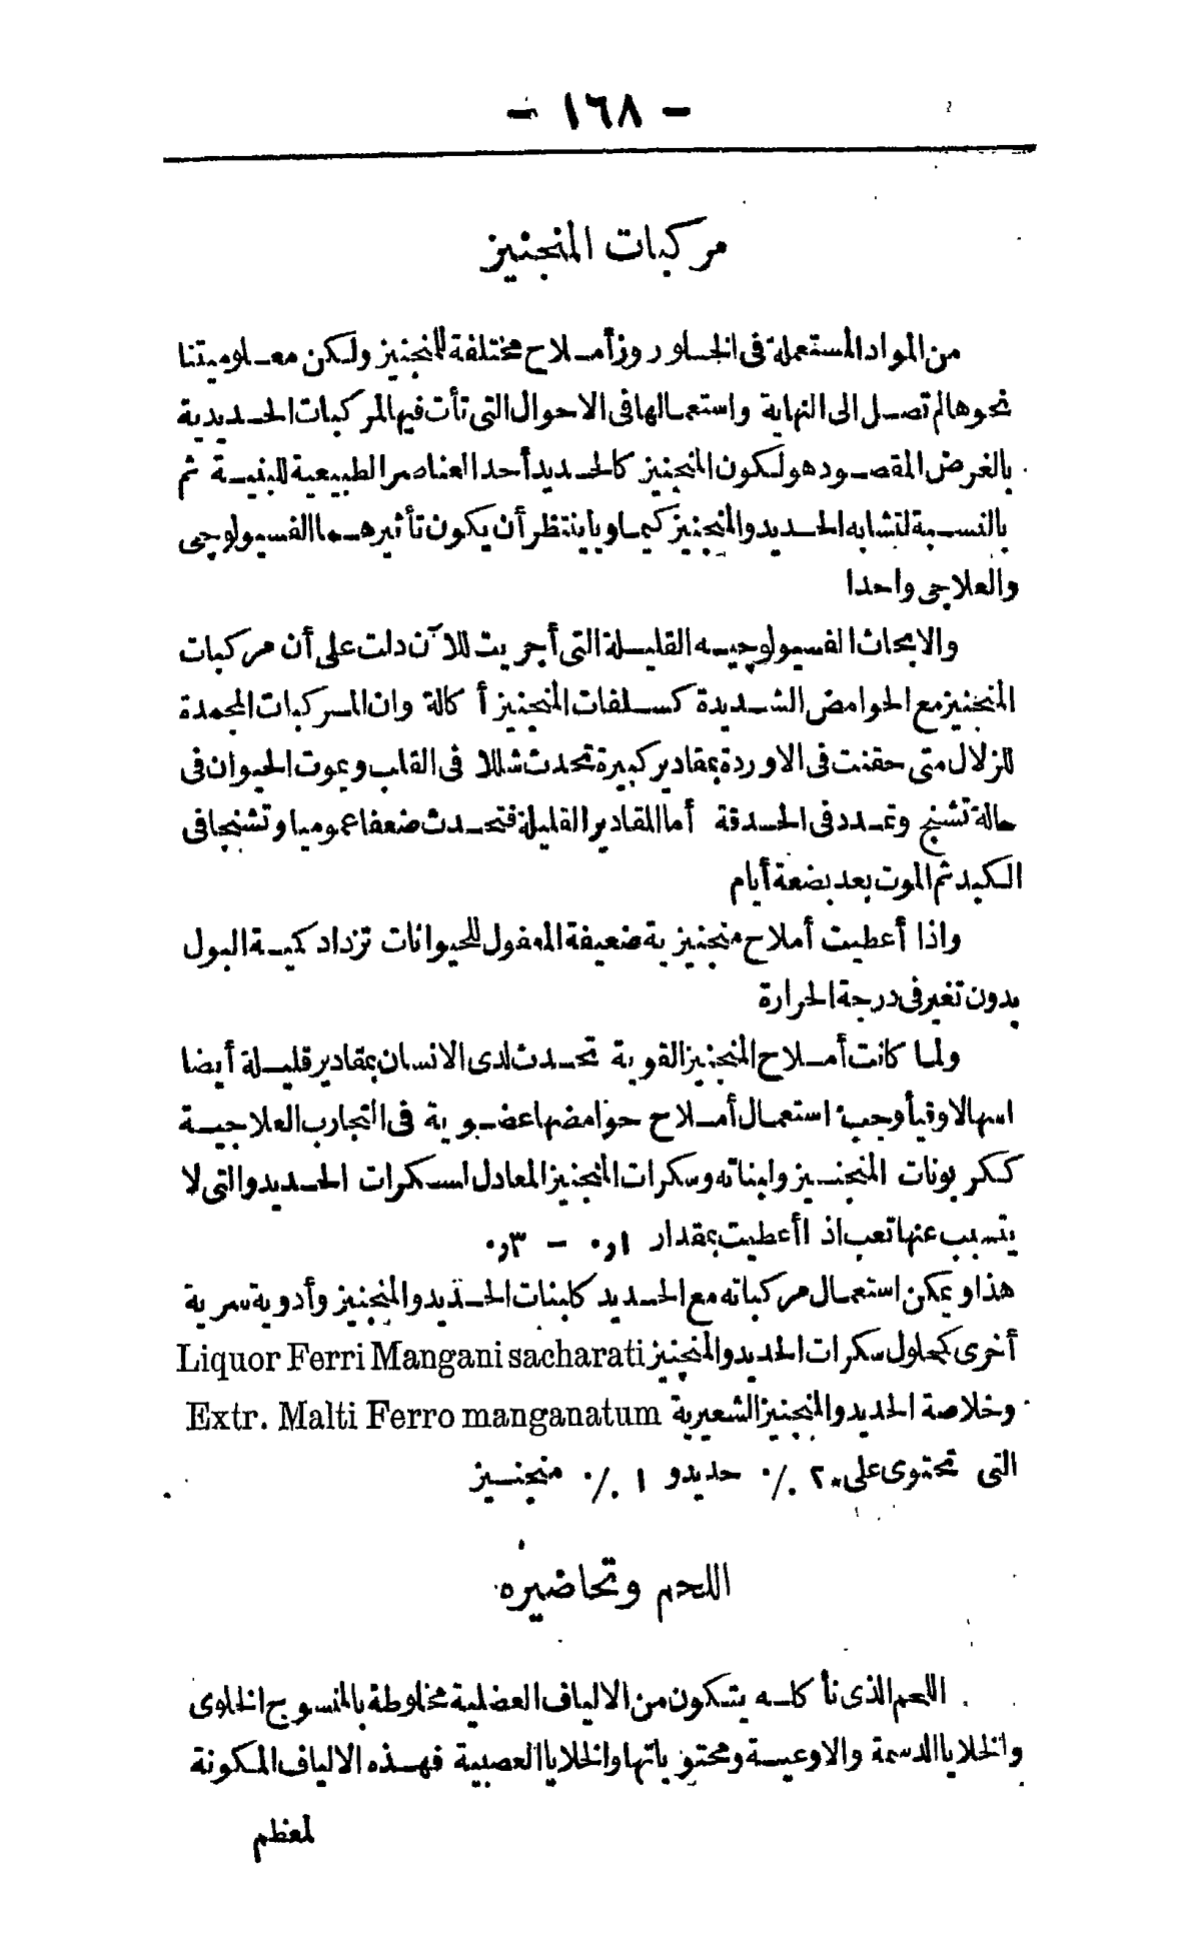 — ١٦٨ —
مركبات المنجنيز
من المواد المستعملة فى الخلوروز أملاح مختلفة للمنجنيز ولكن معلوميتنا
نحوها لم تصل الى النهاية واستعمالها فى الاحوال التى تأت فيها المركبات الحديدية
بالغرض المقصود هو لكون المنجنيز كالحديد أحد العناصر الطبيعية للبنية ثم
بالنسبة لتشابه الحديد والمنجنيز كيماويا ينتظر أن يكون تأثيرهما الفسيولوجى
والعلاجى واحدا
والابحاث الفسيولوجيه القليلة التى أجريت للآن دلت على أن مركبات
المنجنيز مع الحوامض الشديدة كسلفات المنجنيز أكالة وان المركبات المجمدة
للزلال متى حقنت فى الاوردة بمقادير كبيرة تحدث شللا فى القلب ويموت الحيوان فى
حالة تشنج وتمدد فى الحدقة أما المقادير القليلة فتحدث ضعفا عموميا وتشنجا فى
الكبد ثم الموت بعد بضعة أيام
واذا أعطيت أملاح منجنيزية ضعيفة المفعول للحيوانات تزداد كمية البول
بدون تغير فى درجة الحرارة
ولما كانت أملاح المنجنيز القوية تحدث لدى الانسان بمقادير قليلة أيضا
اسهالا وقيأ وجب استعمال أملاح حوامضها عضوية فى التجارب العلاجية
ككربونات المنجنيز ولبناته وسكرات المنجنيز المعادل لسكرات الحديد والتى لا
يتسبب عنها تعب اذا أعطيت بمقدار ٠٫١ — ٠٫٣
هذا ويمكن استعمال مركباته مع الحديد كلبنات الحديد والمنجنيز وأدوية سرية
أخرى كمحلول سكرات الحديد والمنجنيز Liquor Ferri Mangani sacharati
وخلاصة الحديد والمنجنيز الشعيرية Extr. Malti Ferro manganatum
التى تحتوى على ٢٠ ٪ حديد و ١ ٪ منجنيز
اللحم وتحاضيره
اللحم الذى نأكله يتكون من الالياف العضلية مخلوطة بالمنسوج الخلوى
والخلايا الدسمة والاوعية ومحتوياتها والخلايا العصبية فهذه الالياف المكونة
لمعظم